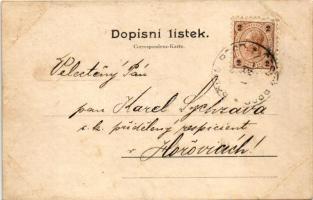 Dopisní lístek.
Correspondenz-Karte.
Velectěný Pán
pan Karel Sychrava
c. k. přidělený respicient
v Hořovicích!